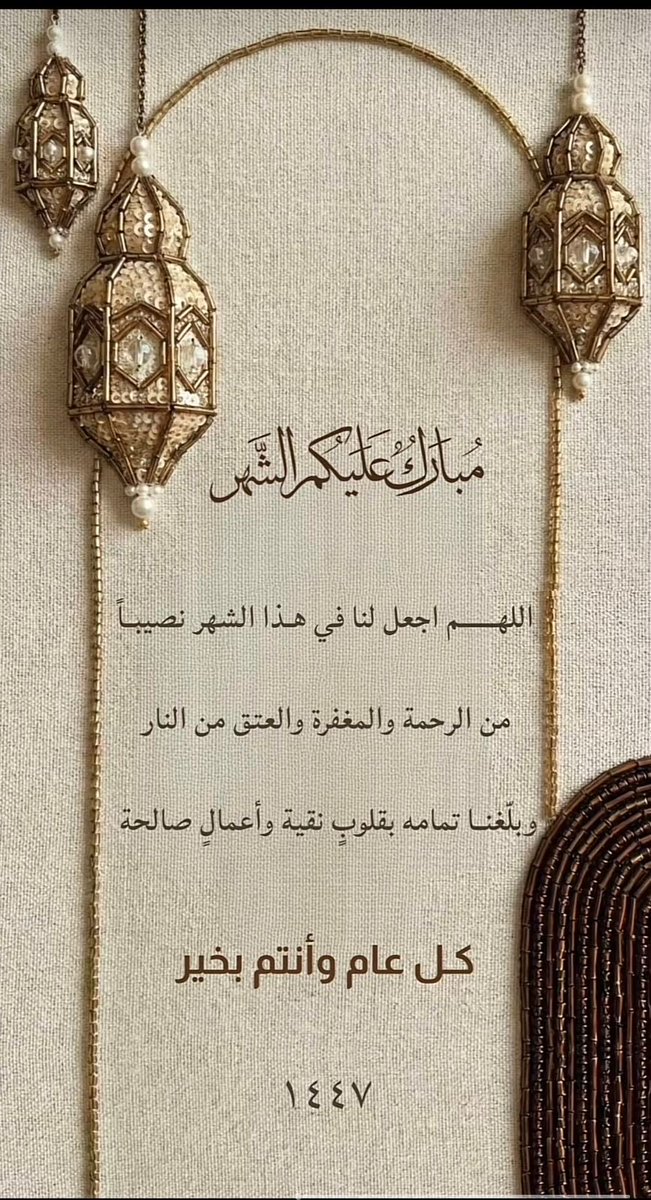 مُبَارَكٌ عَلَيْكُم الشَّهر
اللهـــم اجعل لنا في هـذا الشهر نصيبـاً
من الرحمة والمغفرة والعتق من النار
وبلّغنـا تمامه بقلوبٍ نقية وأعمالٍ صالحة
كـل عام وأنتم بخير
١٤٤٧